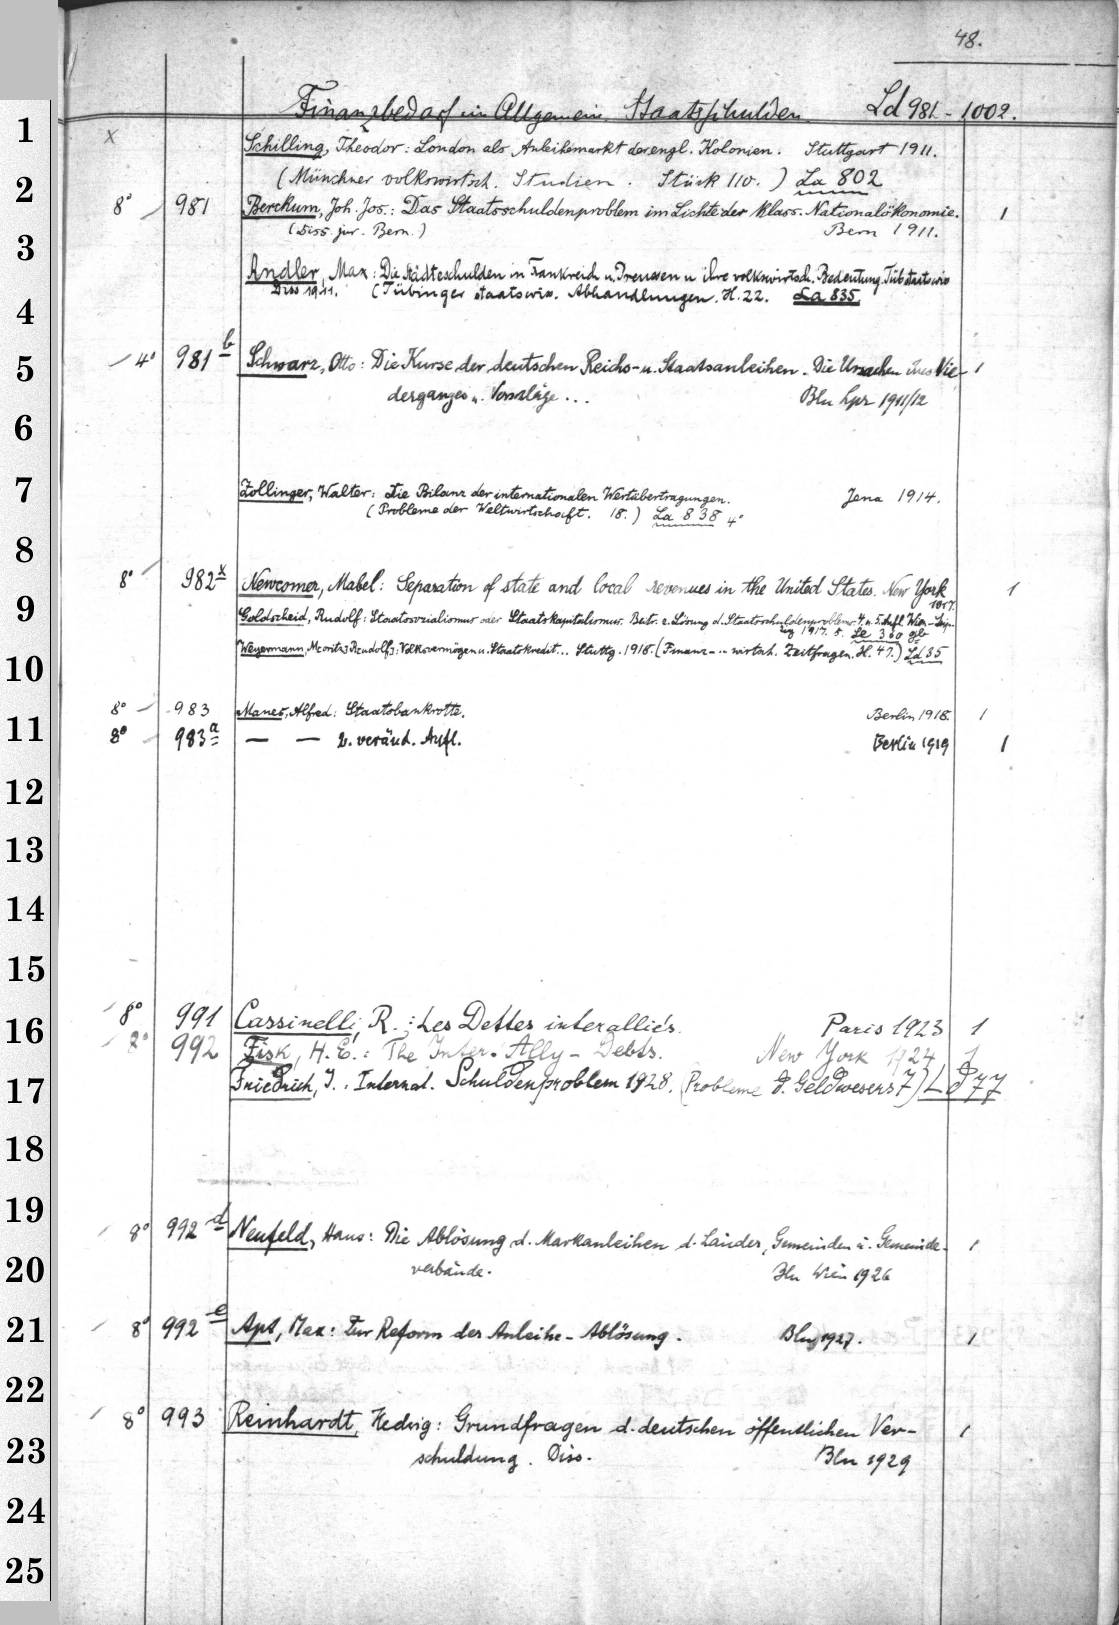 48.
Finanzbedarf im Allgemein. Staatsschulden Ld 981 - 1002.
1
x
Schilling, Theodor: London als Anleihemarkt der engl. Kolonien. Stuttgart 1911.
2
(Münchner volkswirtsch. Studien. Stück 110.) La 802
8° 981 Berckum, Joh. Jos.: Das Staatsschuldenproblem im Lichte der klass. Nationalökonomie. 1
(Diss. jur. Bern.) Bern 1911.
3
Andler, Max: Die Städteschulden in Frankreich u. Preussen u ihre volkswirtsch. Bedeutung. Tüb staatswiss
Diss 1911. (Tübinger staatswiss. Abhandlungen. H. 22. La 835.
4
4° 981 b Schwarz, Otto: Die Kurse der deutschen Reichs- u. Staatsanleihen. Die Ursachen ihres Nie- 1
5
derganges u. Vorschläge ... Bln Lpz 1911/12
6
7
Zollinger, Walter: Die Bilanz der internationalen Wertübertragungen. Jena 1914.
(Probleme der Weltwirtschaft. 18.) La 838 4°
8
8° 982 x Newcomer, Mabel: Separation of state and local revenues in the United States. New York 1
1917.
9
Goldscheid, Rudolf: Staatssozialismus oder Staatskapitalismus. Beitr. z. Lösung d. Staatsschuldenproblems. 4. u. 5. Aufl. Wien-Leip-
zig 1917. 5. Le 360 gb
10
Weyermann, M[oritz] R[udolf]: Volksvermögen u. Staatskredit... Stuttg. 1918. (Finanz- .. wirtsch. Zeitfragen. H. 47.) Ld 35
8° 983 Manes, Alfred: Staatsbankrotte. Berlin 1918. 1
11
8° 983 a — — 2. veränd. Aufl. Berlin 1919 1
12
13
14
15
8° 991 Cassinelli, R.: Les Dettes interalliés. Paris 1923 1
16
8° 992 Fisk, H. E.: The Inter-Ally-Debts. New York 1924 1
17
Friedrich, J.. Internat. Schuldenproblem 1928. (Probleme d. Geldwesens 7) Ld 77
18
19
8° 992 d Neufeld, Hans: Die Ablösung d. Markanleihen d. Länder, Gemeinden u. Gemeinde- 1
20
verbände. Bln Wien 1926
21
8° 992 e Apt, Max: Zur Reform der Anleihe-Ablösung. Bln 1927. 1
22
8° 993 Reinhardt, Hedwig: Grundfragen d. deutschen öffentlichen Ver- 1
23
schuldung. Diss. Bln 1929
24
25